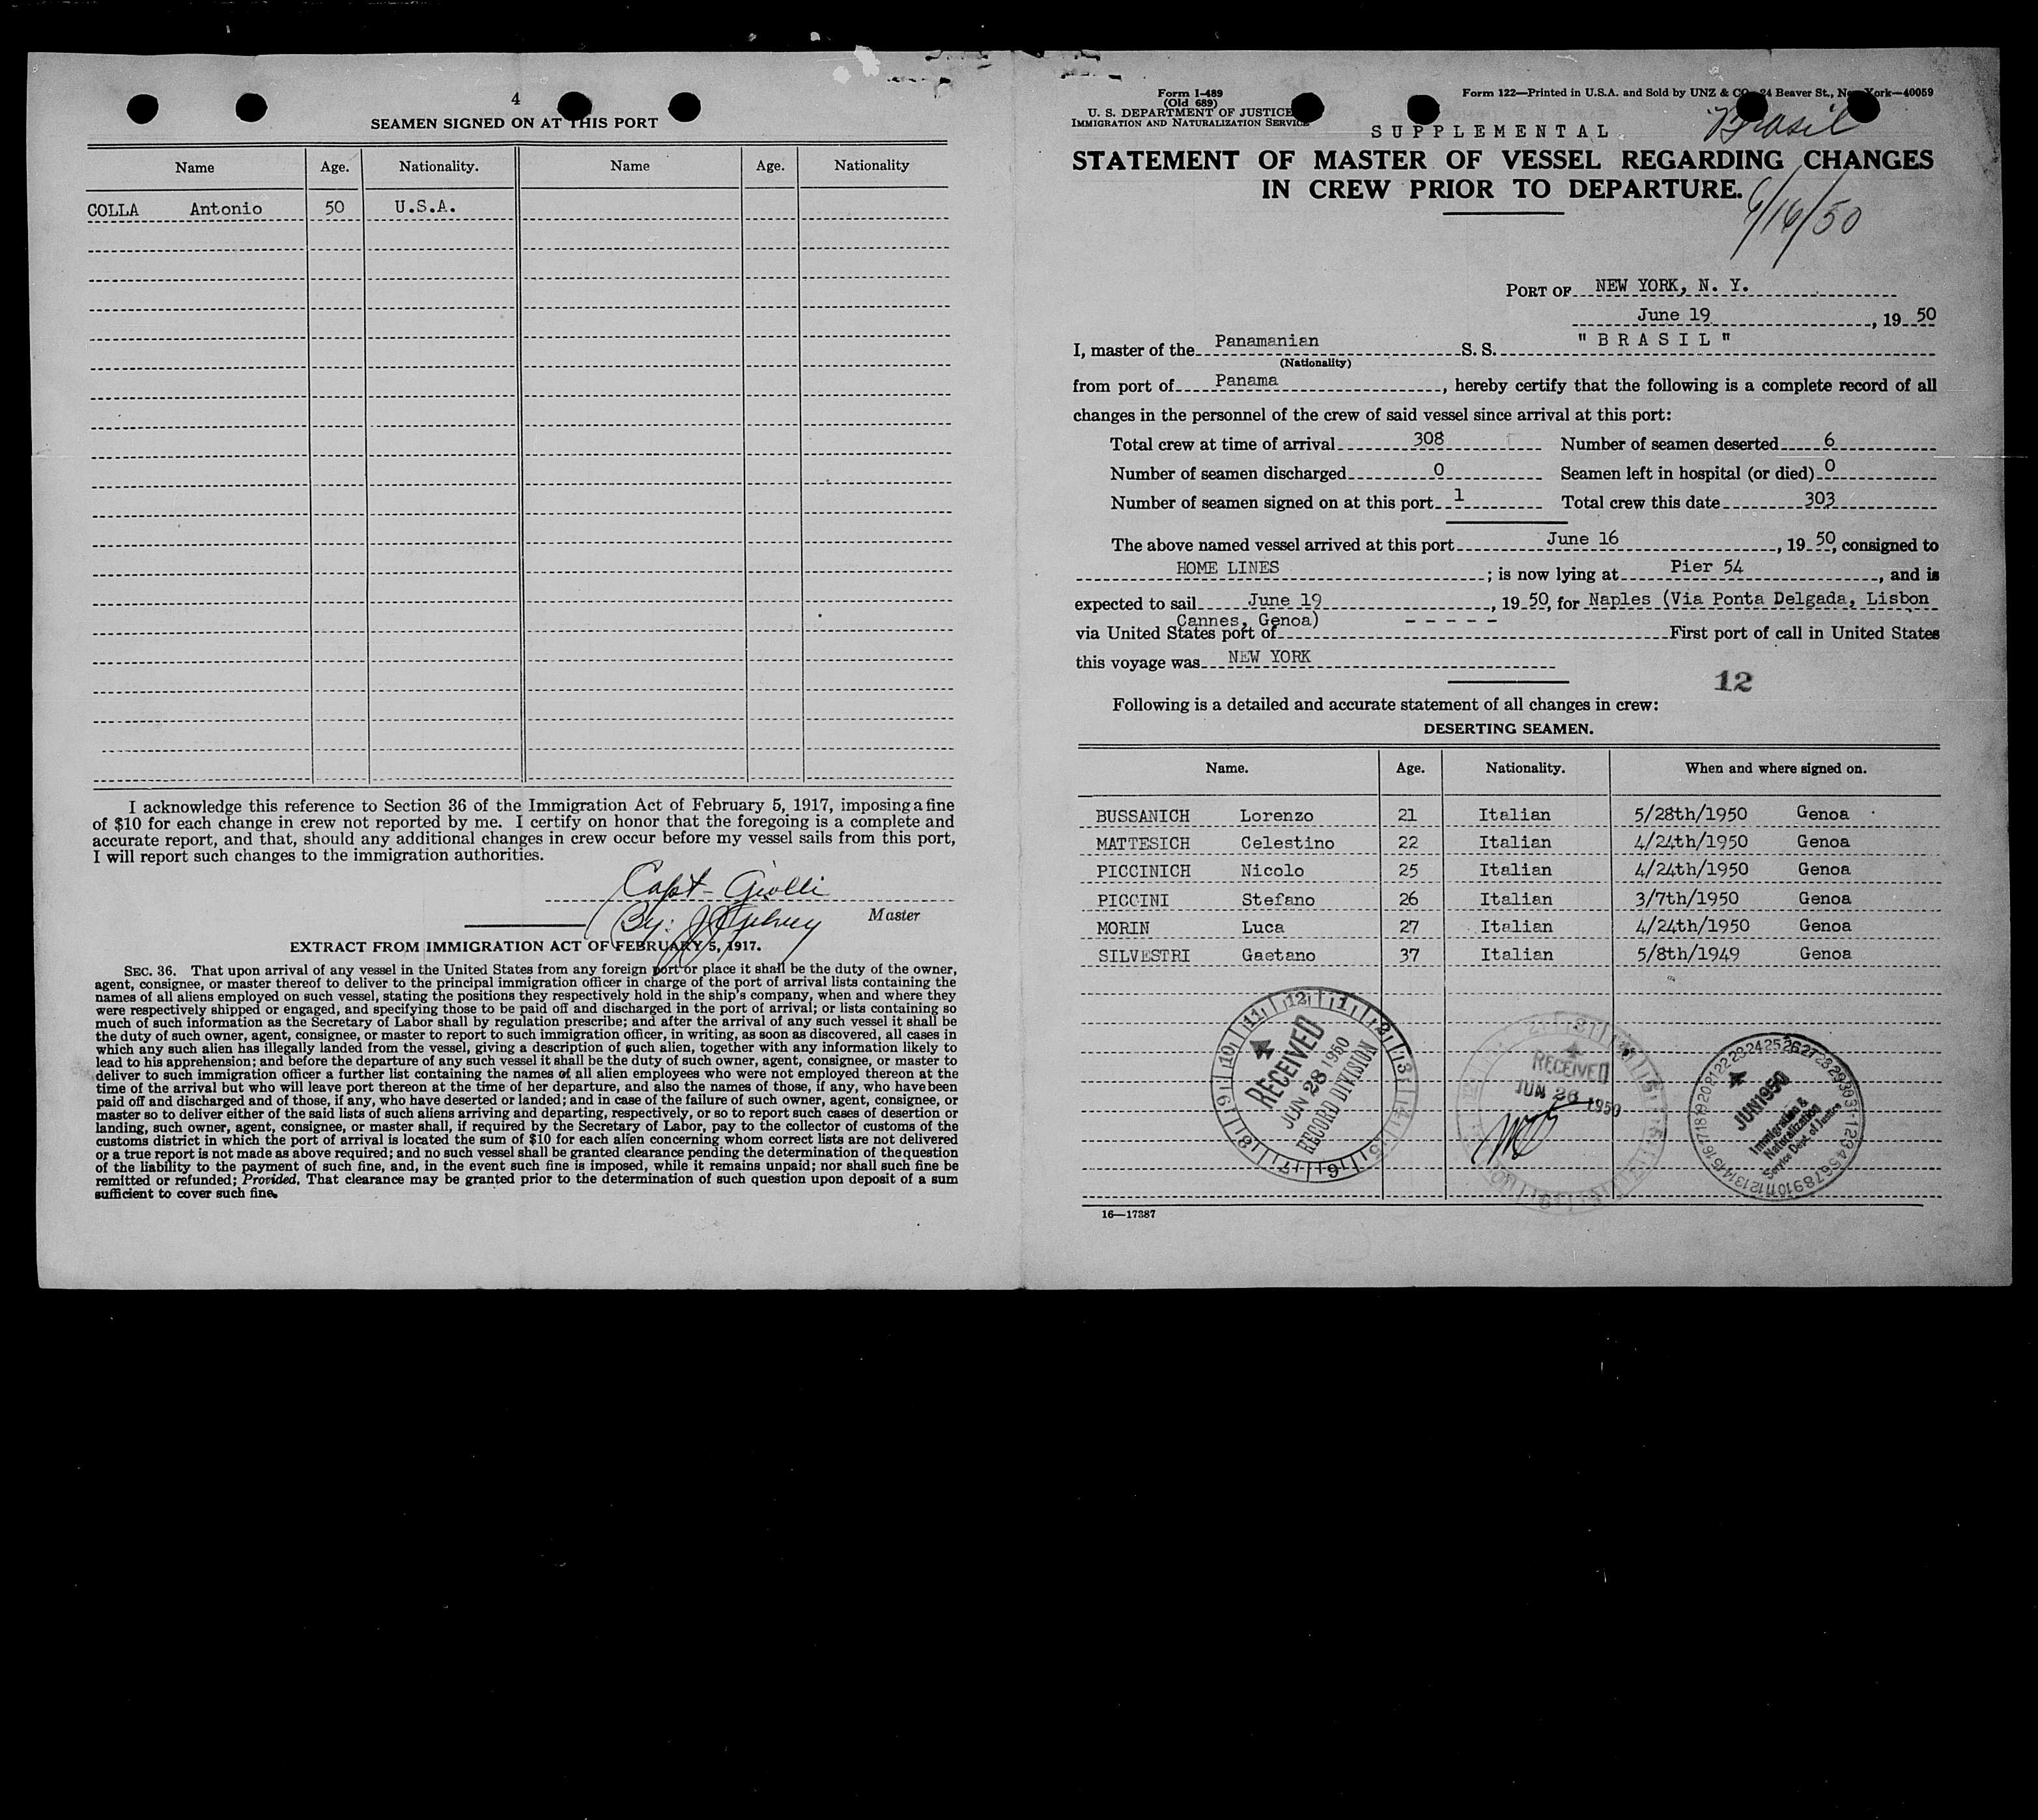 4
SEAMEN SIGNED ON AT THIS PORT
Name Age. Nationality. Name Age. Nationality
COLLA Antonio 50 U.S.A.
I acknowledge this reference to Section 36 of the Immigration Act of February 5, 1917, imposing a fine
of $10 for each change in crew not reported by me. I certify on honor that the foregoing is a complete and
accurate report, and that, should any additional changes in crew occur before my vessel sails from this port,
I will report such changes to the immigration authorities.
Capt - Giolli
By:
Master
EXTRACT FROM IMMIGRATION ACT OF FEBRUARY 5, 1917.
SEC. 36. That upon arrival of any vessel in the United States from any foreign port or place it shall be the duty of the owner,
agent, consignee, or master thereof to deliver to the principal immigration officer in charge of the port of arrival lists containing the
names of all aliens employed on such vessel, stating the positions they respectively hold in the ship's company, when and where they
were respectively shipped or engaged, and specifying those to be paid off and discharged in the port of arrival; or lists containing so
much of such information as the Secretary of Labor shall by regulation prescribe; and after the arrival of any such vessel it shall be
the duty of such owner, agent, consignee, or master to report to such immigration officer, in writing, as soon as discovered, all cases in
which any such alien has illegally landed from the vessel, giving a description of such alien, together with any information likely to
lead to his apprehension; and before the departure of any such vessel it shall be the duty of such owner, agent, consignee, or master to
deliver to such immigration officer a further list containing the names of all alien employees who were not employed thereon at the
time of the arrival but who will leave port thereon at the time of her departure, and also the names of those, if any, who have been
paid off and discharged and of those, if any, who have deserted or landed; and in case of the failure of such owner, agent, consignee, or
master so to deliver either of the said lists of such aliens arriving and departing, respectively, or so to report such cases of desertion or
landing, such owner, agent, consignee, or master shall, if required by the Secretary of Labor, pay to the collector of customs of the
customs district in which the port of arrival is located the sum of $10 for each alien concerning whom correct lists are not delivered
or a true report is not made as above required; and no such vessel shall be granted clearance pending the determination of the question
of the liability to the payment of such fine, and, in the event such fine is imposed, while it remains unpaid; nor shall such fine be
remitted or refunded; Provided, That clearance may be granted prior to the determination of such question upon deposit of a sum
sufficient to cover such fine.
Form I-489
(Old 689)
U. S. DEPARTMENT OF JUSTICE
IMMIGRATION AND NATURALIZATION SERVICE
Form 122—Printed in U.S.A. and Sold by UNZ & CO., 24 Beaver St., New York—40059
Brasil
SUPPLEMENTAL
STATEMENT OF MASTER OF VESSEL REGARDING CHANGES
IN CREW PRIOR TO DEPARTURE.
6/16/50
PORT OF NEW YORK, N. Y.
June 19, 19 50
I, master of the Panamanian S. S. "BRASIL"
(Nationality)
from port of Panama, hereby certify that the following is a complete record of all
changes in the personnel of the crew of said vessel since arrival at this port:
Total crew at time of arrival 308 Number of seamen deserted 6
Number of seamen discharged 0 Seamen left in hospital (or died) 0
Number of seamen signed on at this port 1 Total crew this date 303
The above named vessel arrived at this port June 16, 19 50, consigned to
HOME LINES; is now lying at Pier 54, and is
expected to sail June 19, 19 50, for Naples (Via Ponta Delgada, Lisbon
Cannes, Genoa) - - - - -
via United States port of First port of call in United States
this voyage was NEW YORK
12
Following is a detailed and accurate statement of all changes in crew:
DESERTING SEAMEN.
Name. Age. Nationality. When and where signed on.
BUSSANICH Lorenzo 21 Italian 5/28th/1950 Genoa
MATTESICH Celestino 22 Italian 4/24th/1950 Genoa
PICCINICH Nicolo 25 Italian 4/24th/1950 Genoa
PICCINI Stefano 26 Italian 3/7th/1950 Genoa
MORIN Luca 27 Italian 4/24th/1950 Genoa
SILVESTRI Gaetano 37 Italian 5/8th/1949 Genoa
RECEIVED
JUN 28 1950
RECORD DIVISION
RECEIVED
JUN 26 1950
JUN 1950
Immigration &
Naturalization
Service Dept. of Justice
16—17387